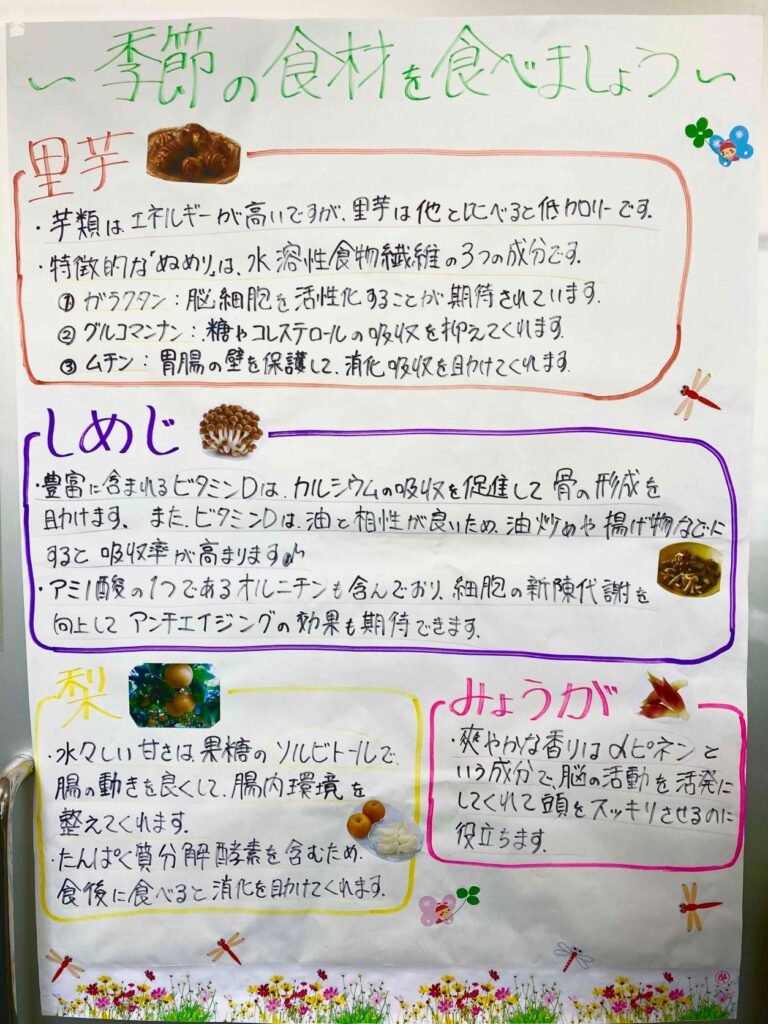 ～季節の食材を食べましょう～
里芋
・芋類はエネルギーが高いですが、里芋は他と比べると低カロリーです。
・特徴的な「ぬめり」は、水溶性食物繊維の3つの成分です。
① ガラクタン：脳細胞を活性化することが期待されています。
② グルコマンナン：糖やコレステロールの吸収を抑えてくれます。
③ ムチン：胃腸の壁を保護して、消化吸収を助けてくれます。
しめじ
・豊富に含まれるビタミンDは、カルシウムの吸収を促進して骨の形成を
助けます。また、ビタミンDは、油と相性が良いため、油炒めや揚げ物などに
すると吸収率が高まります♪
・アミノ酸の1つであるオルニチンも含んでおり、細胞の新陳代謝を
向上してアンチエイジングの効果も期待できます。
梨
・水々しい甘さは、果糖のソルビトールで、
腸の動きを良くして、腸内環境を
整えてくれます。
・たんぱく質分解酵素を含むため、
食後に食べると消化を助けてくれます。
みょうが
・爽やかな香りはαピネンと
いう成分で、脳の活動を活発に
してくれて頭をスッキリさせるのに
役立ちます。